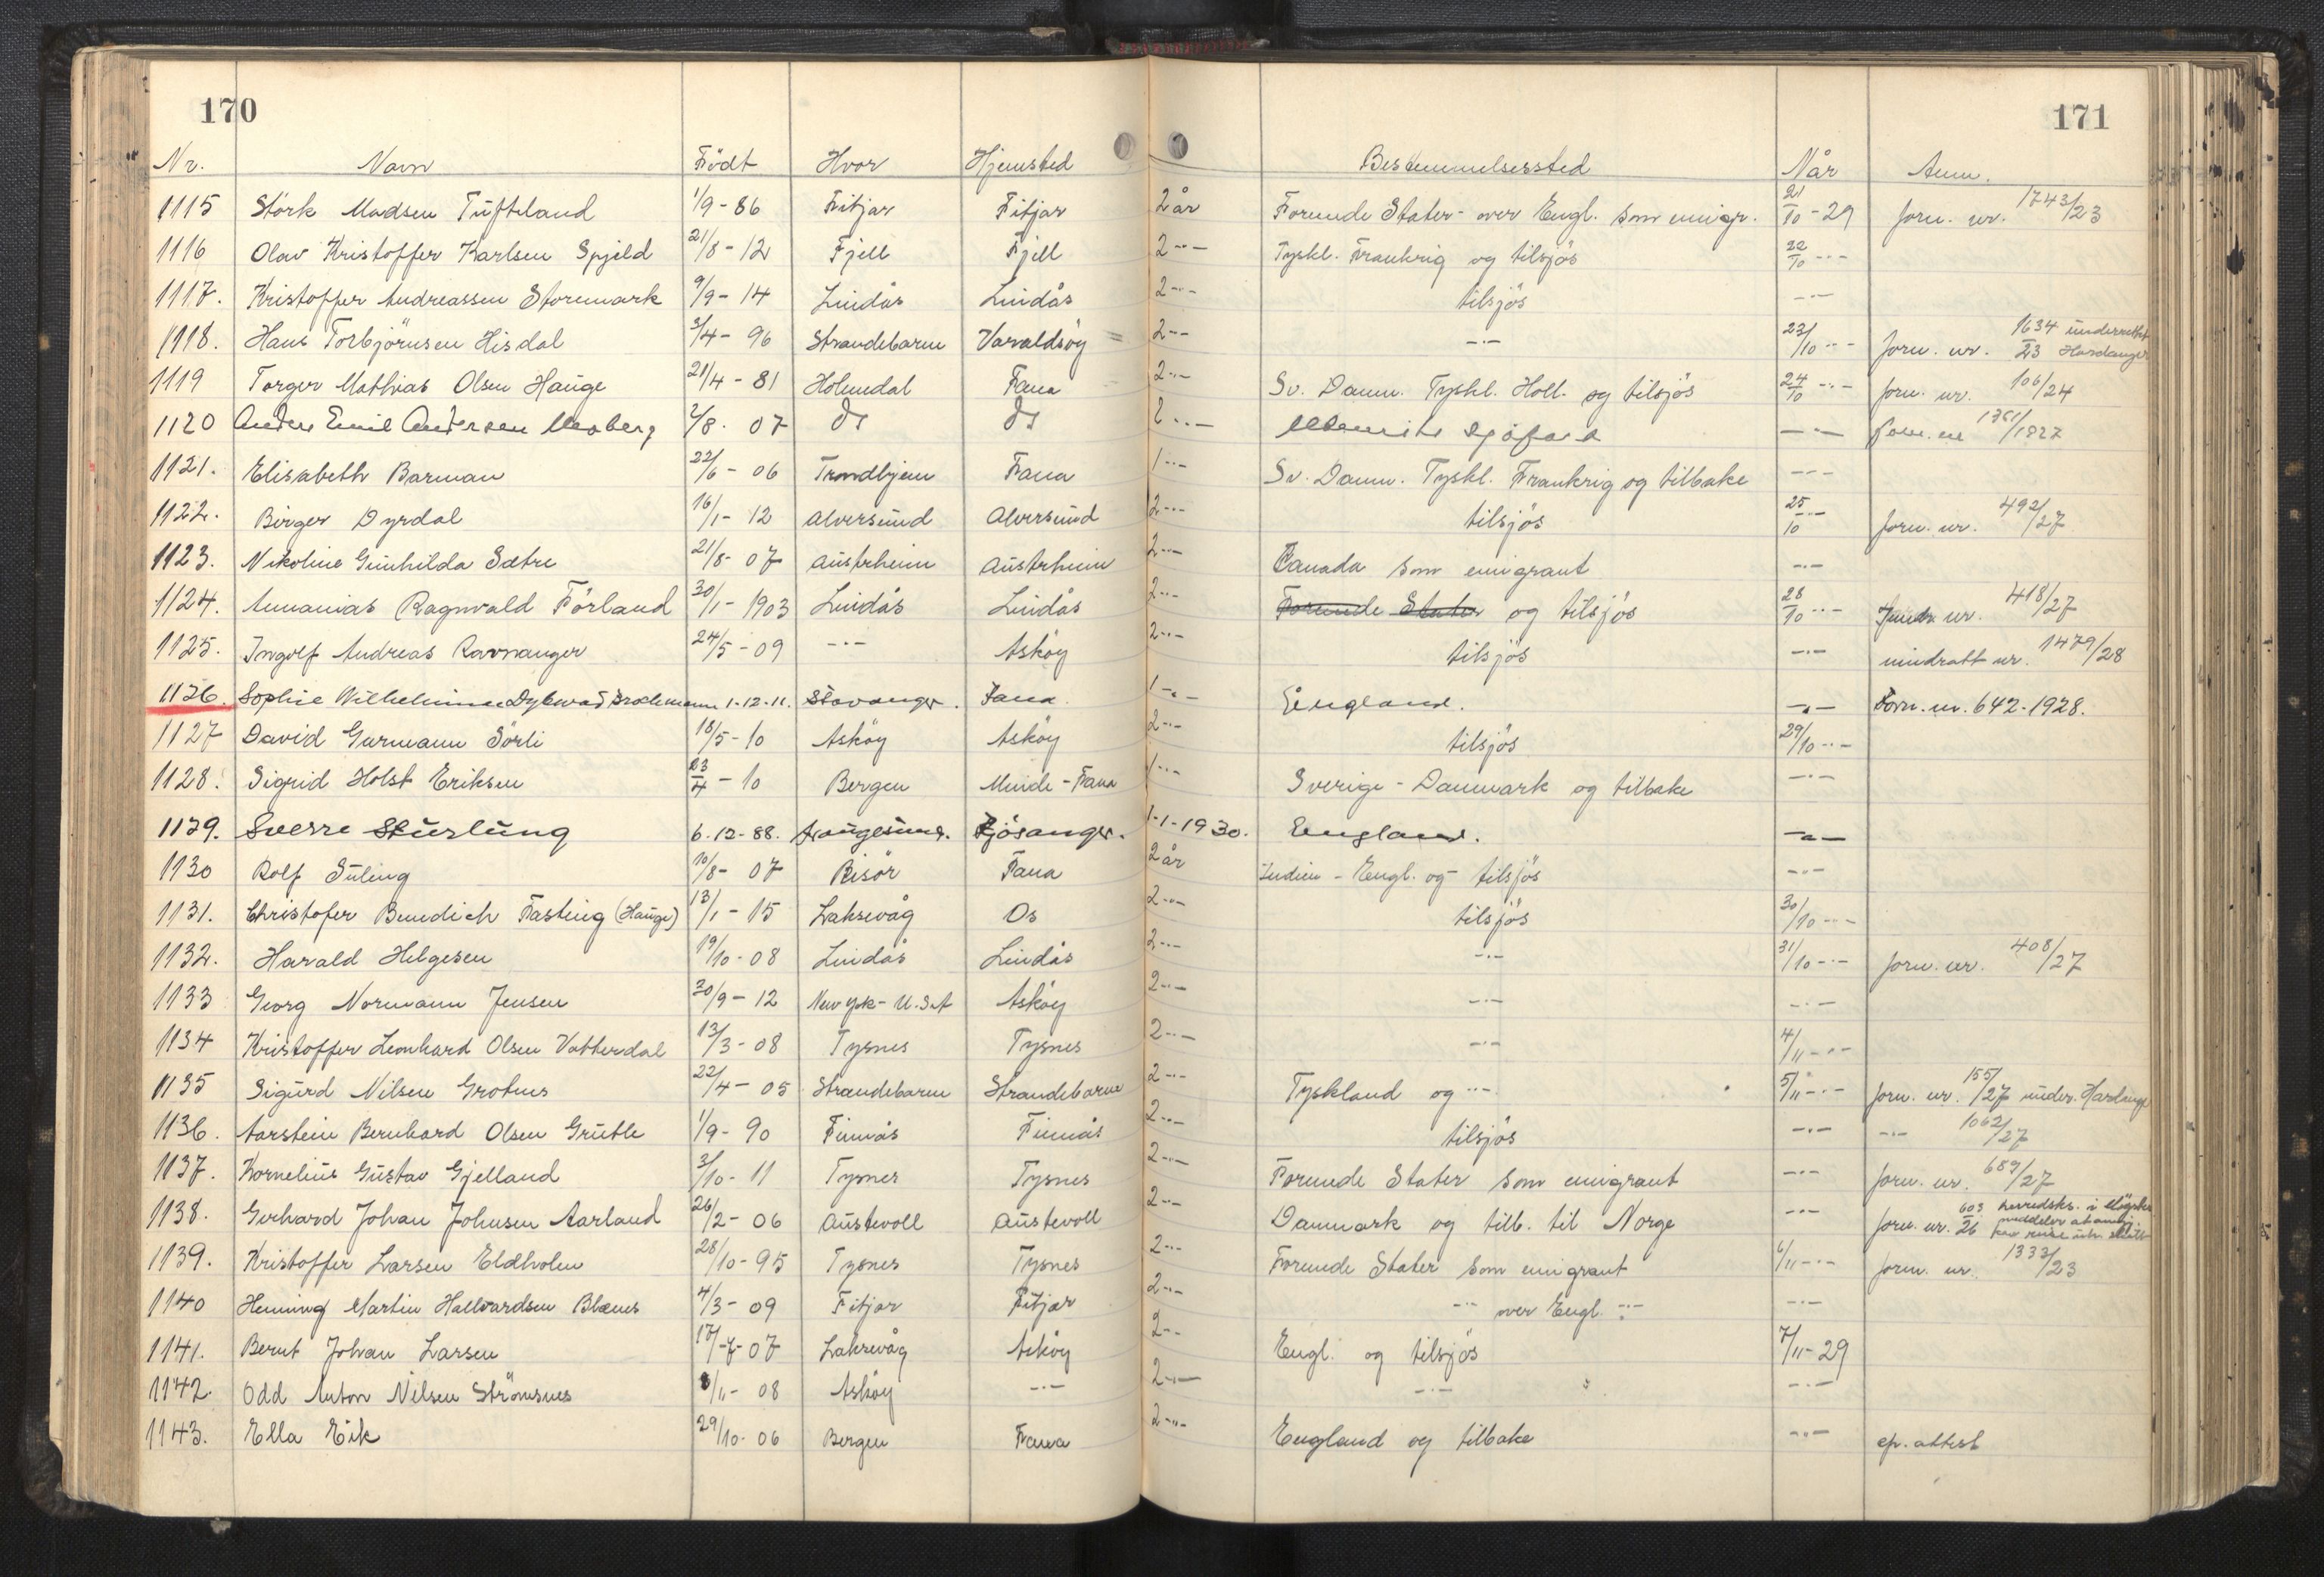 170
171
Nr. Navn Födt Hvor Hjemsted Bestemmelsessted Når Anm.
1115 Störk Madsen Tufteland 1/9-86 Fitjar Fitjar 2 år Forende Stater - over Engl. som emigr. 21/10-29 forn. nr. 1743/23
1116 Olav Kristoffer Karlsen Spjeld 21/8-12 Fjell Fjell 2 -"- Tyskl. Frankrig og tilsjös 22/10 -"-
1117. Kristoffer Andreassen Storemark 9/9-14 Lindås Lindås 2 -"- tilsjös -"-
1118. Hans Torbjörnsen Hisdal 3/4-96 Strandebarm Varaldsöy 2 -"- -"- 23/10 -"- forn. nr. 1634/23 underrettet Hardanger
1119 Torger Mathias Olsen Hauge 21/4-81 Holmedal Fana 2 -"- Sv. Danm. Tyskl. Holl. og tilsjös 24/10 -"- forn. nr. 106/24
1120 Anders Emil Andersen Moberg 2/8-07 Os Os 2 -"- sjöfart -"- forn. nr 1361/1927
1121. Elisabeth Barman 22/6-06 Trondhjem Fana 1 -"- Sv. Danm. Tyskl. Frankrig og tilbake -"-
1122. Birger Dyrdal 16/1-12 Alversund Alversund 2 -"- tilsjös 25/10 -"- forn. nr. 492/27
1123. Nikoline Gunhilda Sætre 21/8-07 Austrheim Austrheim 2 -"- Canada som emigrant -"-
1124. Annanias Ragnvald Förland 30/1-1903 Lindås Lindås 2 -"- Forende Stater og tilsjös 28/10 -"- nr. 418/27
1125. Ingolf Andreas Ravnanger 24/5-09 -"- Asköy 2 -"- tilsjös -"- inndratt nr. 1479/28
1126. Sophie Wilhelmine Dybwad Brochmann 1-12-11. Stavanger. Fana 1 -"- England. -"- Forn. nr. 642-1928.
1127 David Gurmann Sörli 18/5-10 Asköy Asköy 2 -"- tilsjös 29/10 -"-
1128. Sigrid Holst Eriksen 23/4-10 Bergen Minde - Fana 1 -"- Sverige - Danmark og tilbake -"-
1129. Sverre Sturlung 6-12-88. Haugesund. Fjösanger. 1-1-1930. England. -"-
1130 Rolf Suling 10/8-07 Risör Fana 2 år Indien - Engl. og tilsjös -"-
1131. Christofer Benedich Fasting (Hauge) 13/1-15 Laksevåg Os 2 -"- tilsjös 30/10 -"-
1132. Harald Helgesen 19/10-08 Lindås Lindås 2 -"- -"- 31/10 -"- forn. nr. 408/27
1133 Georg Normann Jensen 20/9-12 New York - U.S.A Asköy 2 -"- -"- -"-
1134 Kristoffer Leonhard Olsen Vatterdal 13/3-08 Tysnes Tysnes 2 -"- -"- 4/11 -"-
1135 Sigurd Nilsen Grotnes 22/4-05 Strandebarm Strandebarm 2 -"- Tyskland og -"- 5/11 -"- forn. nr. 155/27 under. Hardange
1136. Aarstein Bernhard Olsen Grutle 1/9-90 Finnås Finnås 2 -"- tilsjös -"- -"- 1062/27
1137. Kornelius Gustav Gjelland 3/10-11 Tysnes Tysnes 2 -"- Forende Stater som emigrant -"- forn. nr. 689/27
1138. Gerhard Johan Johnsen Aarland 26/2-06 Austevoll Austevoll 2 -"- Danmark og tilb. til Norge -"- forn. nr. 603/26
1139. Kristoffer Larsen Eldholm 28/10-95 Tysnes Tysnes 2 -"- Forende Stater som emigrant 6/11 -"- forn. nr. 1333/23
1140 Henning Martin Hallvardsen Blænes 4/3-09 Fitjar Fitjar 2 -"- -"- over Engl. -"- -"-
1141. Bernt Johan Larsen 17/7-07 Laksevåg Asköy 2 -"- Engl. og tilsjös 7/11-29
1142. Odd Anton Nilsen Strömsnes /11-08 Asköy -"- 2 -"- -"- -"-
1143. Ella Eik 29/10-06 Bergen Fana 2 -"- England og tilbake -"- ep. attest